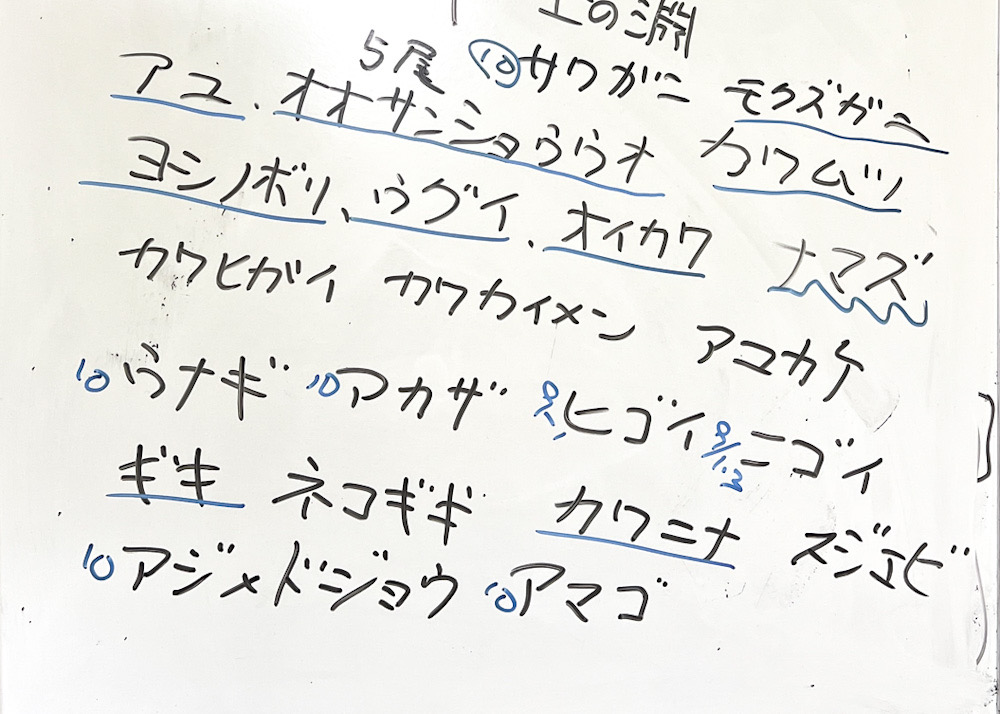 上の淵
5尾 ⑩サワガニ モクズガニ
アユ、オオサンショウウオ カワムツ
ヨシノボリ、ウグイ、オイカワ ナマズ
カワヒガイ カワカイメン アユカケ
10ウナギ 10アカザ ヒゴイ ニゴイ
ギギ ネコギギ カワニナ スジエビ
10アジメドジョウ 10アマゴ